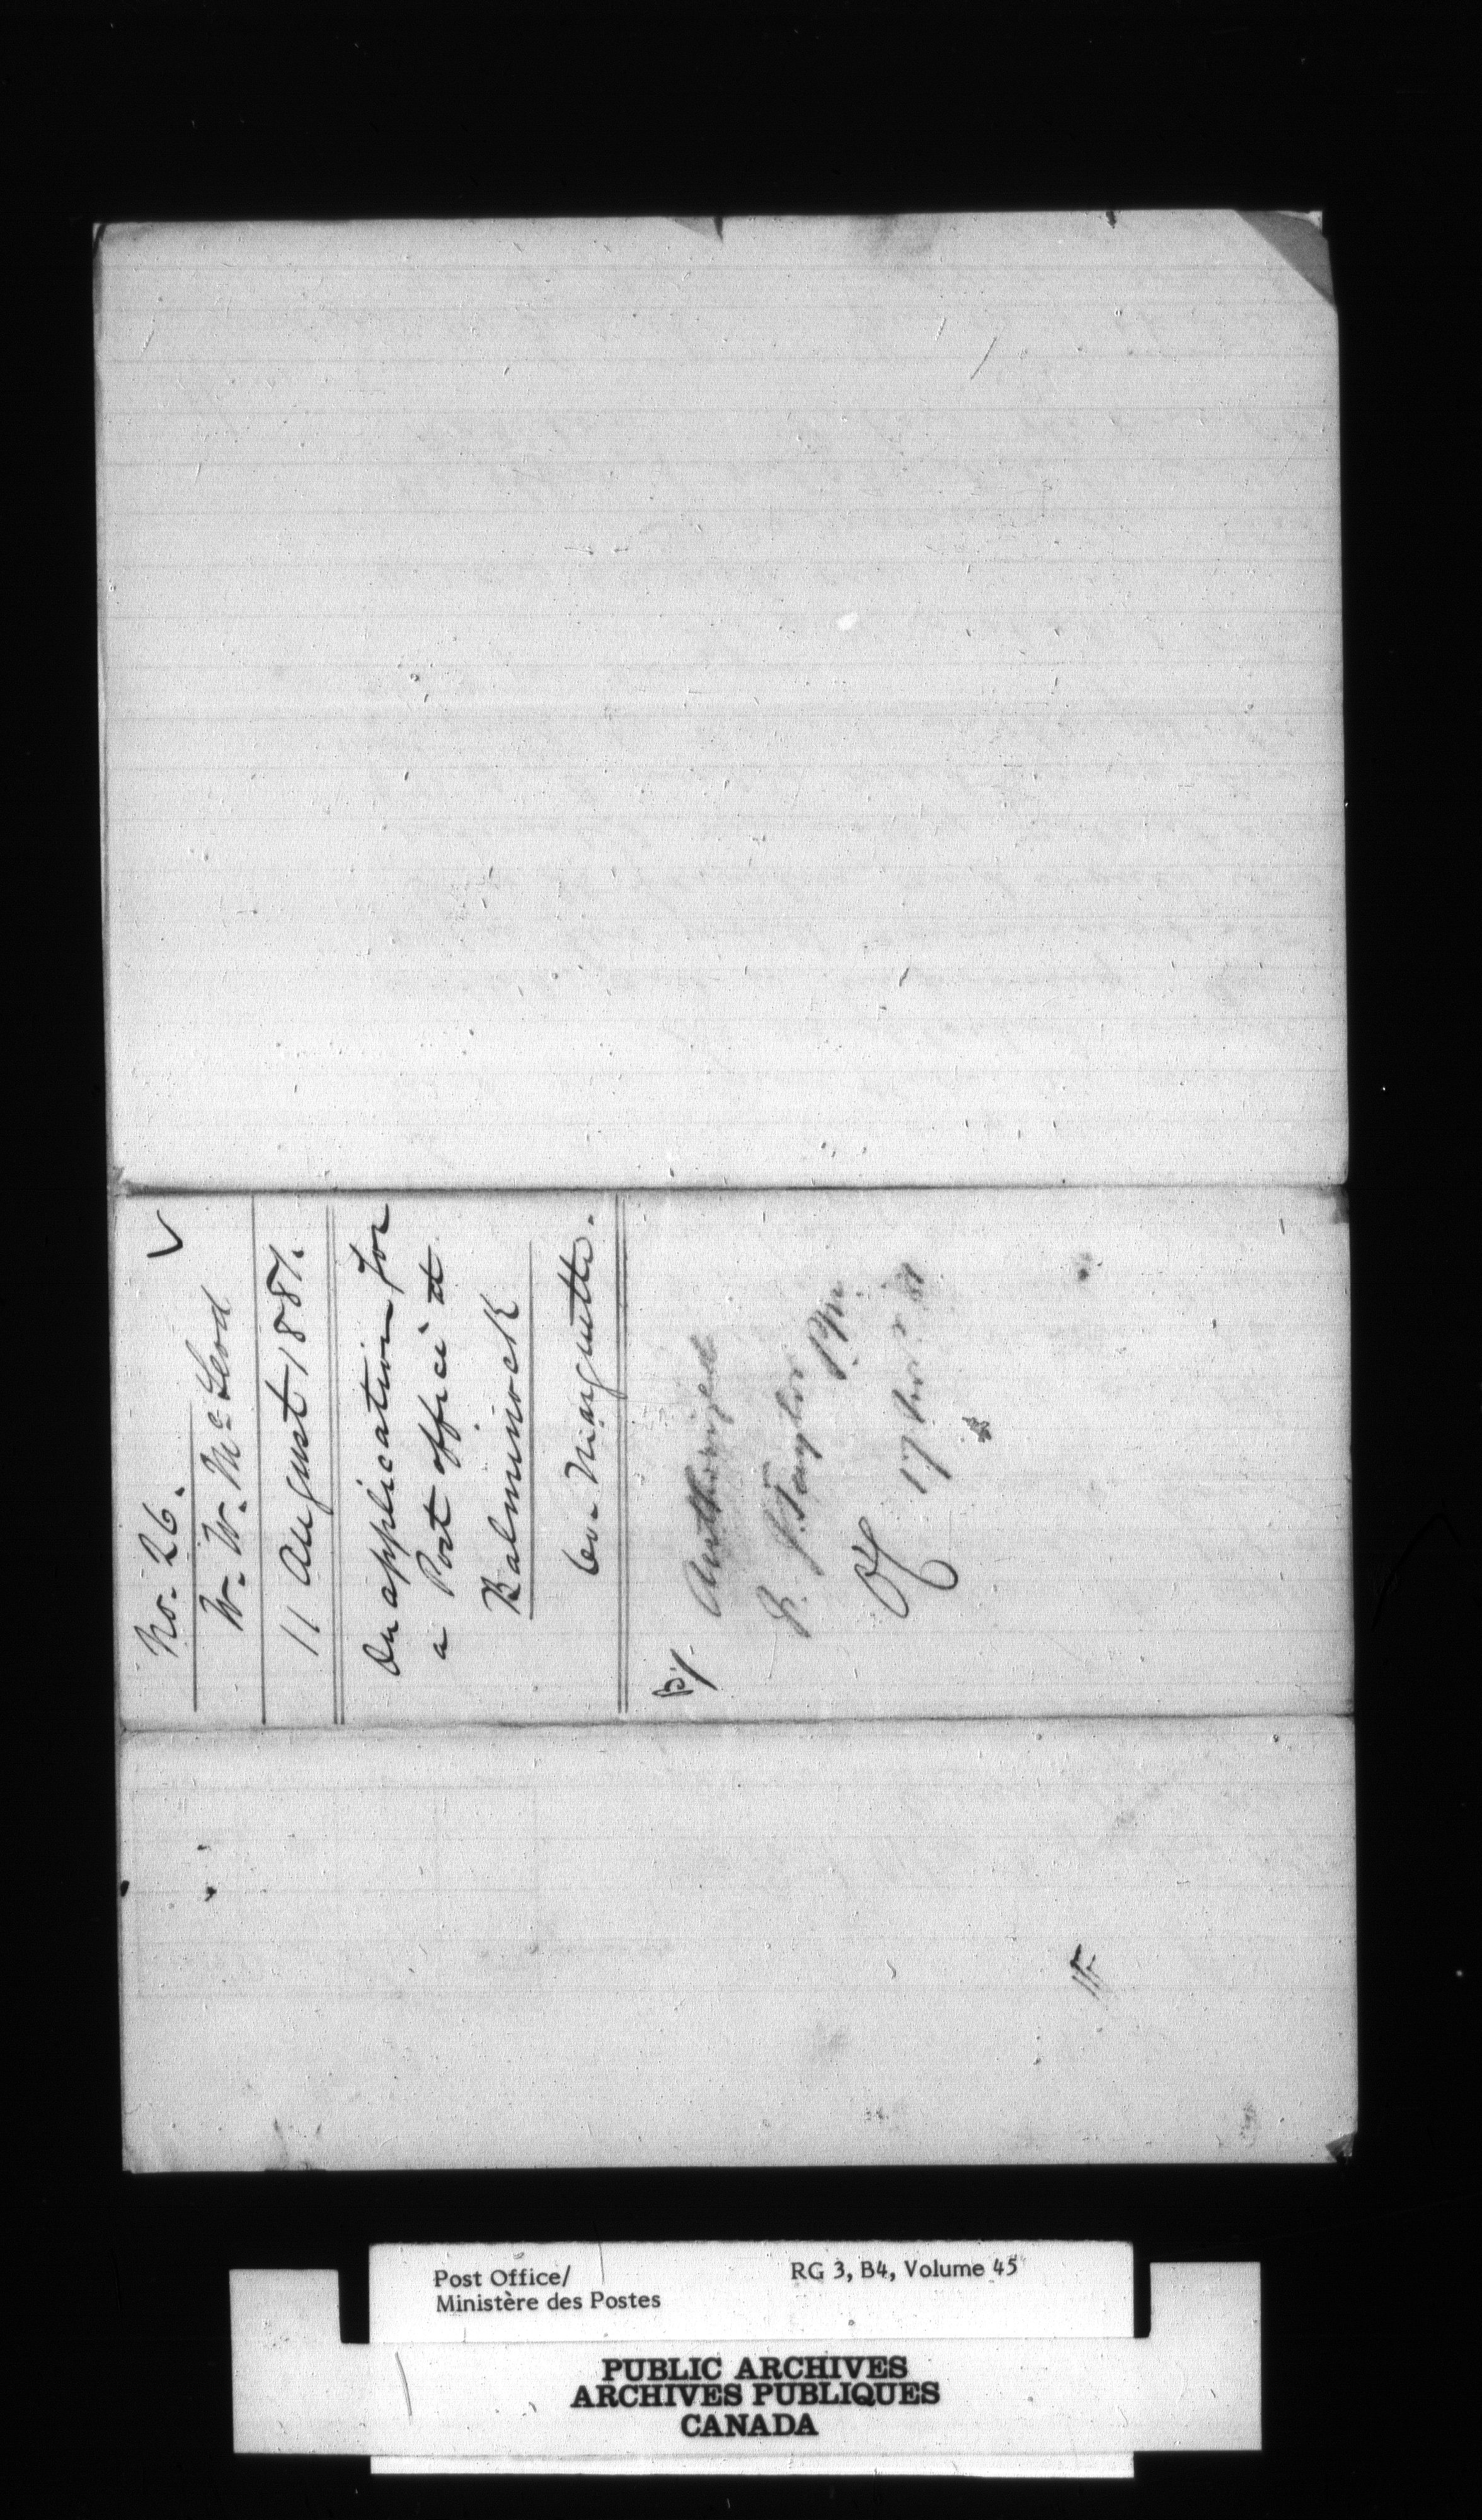 No. 26.
W. W. McLeod
11 August 1881.
On application for
a Post office at
Balminock
Co. Marquette.
Authorized
J. Taylor P.M.
17 Nov 81
Post Office/
Ministère des Postes
RG 3, B4, Volume 45
PUBLIC ARCHIVES
ARCHIVES PUBLIQUES
CANADA